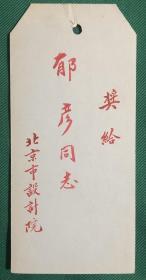 奬給
郁彦同志
北京市設計院